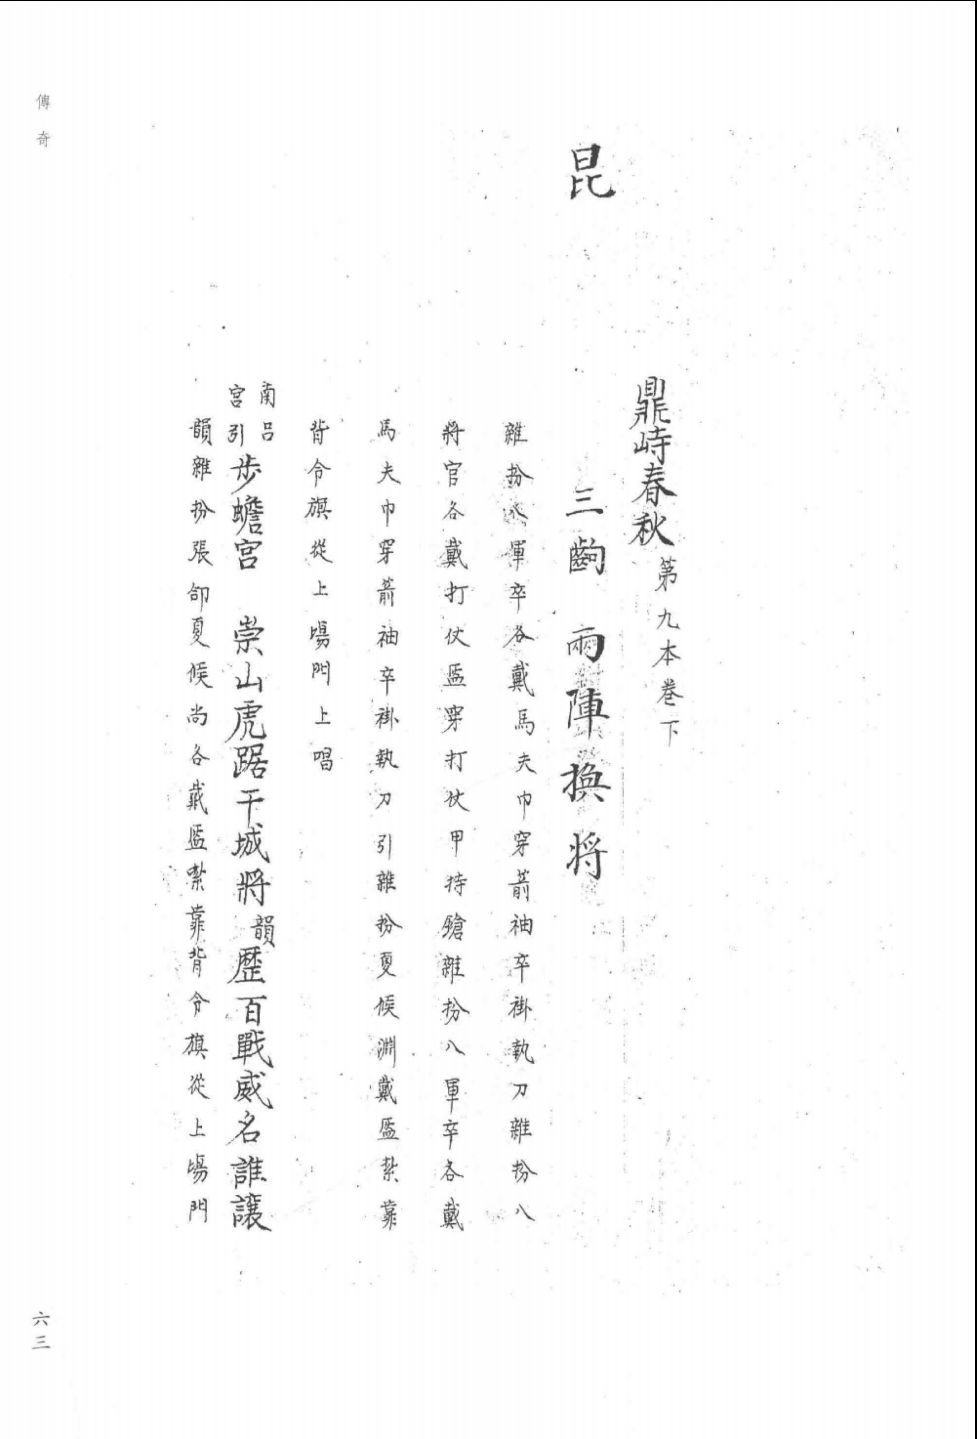 昆
鼎峙春秋 第九本卷下
三齣 兩陣換將
雜扮八軍卒各戴馬夫巾穿箭袖卒褂執刀雜扮八
將官各戴打仗盔穿打仗甲持鎗雜扮八軍卒各戴
馬夫巾穿箭袖卒褂執刀引雜扮夏侯淵戴盔紮靠
背令旗從上場門上唱
南呂宮引 步蟾宮 崇山虎踞干城將韻歷百戰威名誰讓
韻雜扮張郃夏侯尚各戴盔紮靠背令旗從上場門
傳奇
六三